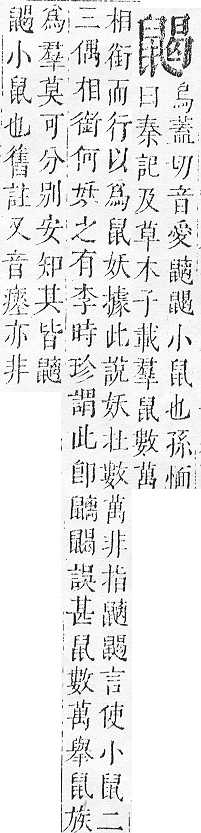 烏蓋切音愛小鼠也孫愐
曰秦記及草木子載羣鼠數萬
相銜而行以爲鼠妖據此說妖壯數萬非指言使小鼠二
三偶相銜何妖之有李時珍謂此卽誤甚鼠數萬舉鼠族
爲羣莫可分別安知其皆
小鼠也舊註又音瘞亦非